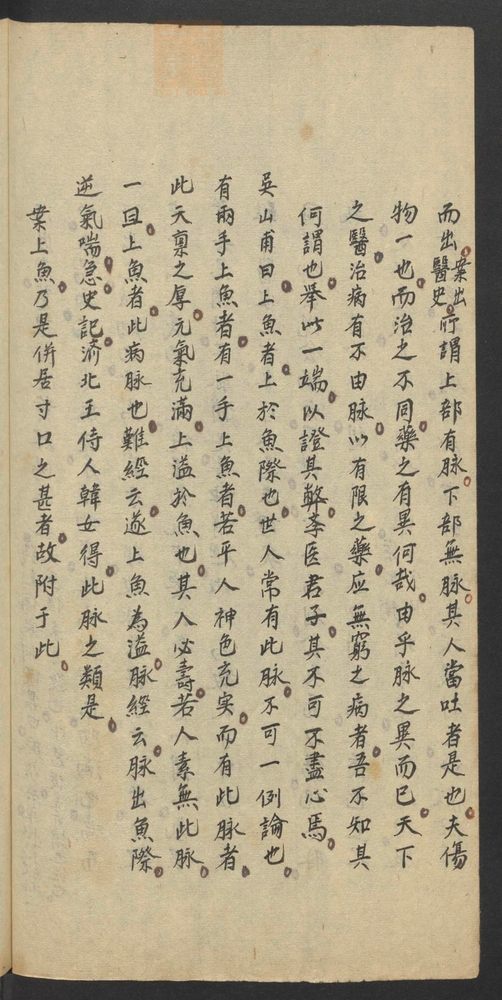 而出案出醫史所謂上部有脉下部無脉其人當吐者是也夫傷
物一也而治之不同藥之有異何哉由乎脉之異而已天下
之醫治病有不由脉以有限之藥应無窮之病者吾不知其
何謂也举此一端以證其弊業医君子其不可不盡心焉
吳山甫曰上魚者上於魚際也世人常有此脉不可一例論也
有兩手上魚者有一手上魚者若平人神色充实而有此脉者
此天稟之厚元氣充滿上溢於魚也其人必壽若人素無此脉
一旦上魚者此病脉也難經云遂上魚為溢脉經云脉出魚際
逆氣喘急史記济北王侍人韓女得此脉之類是
案上魚乃是併居寸口之甚者故附于此